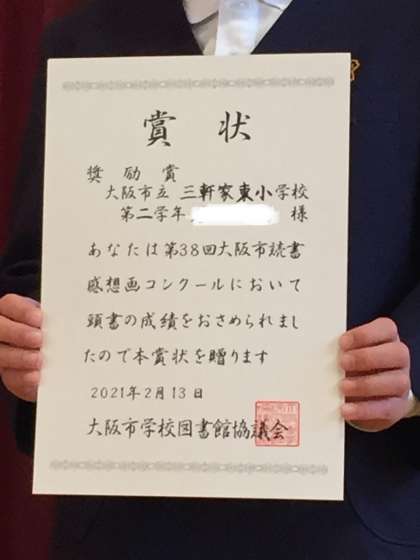 賞状
奨励賞
大阪市立 三軒家東小学校
第二学年 様
あなたは第38回大阪市読書
感想画コンクールにおいて
頭書の成績をおさめられまし
たので本賞状を贈ります
2021年2月13日
大阪市学校図書館協議会